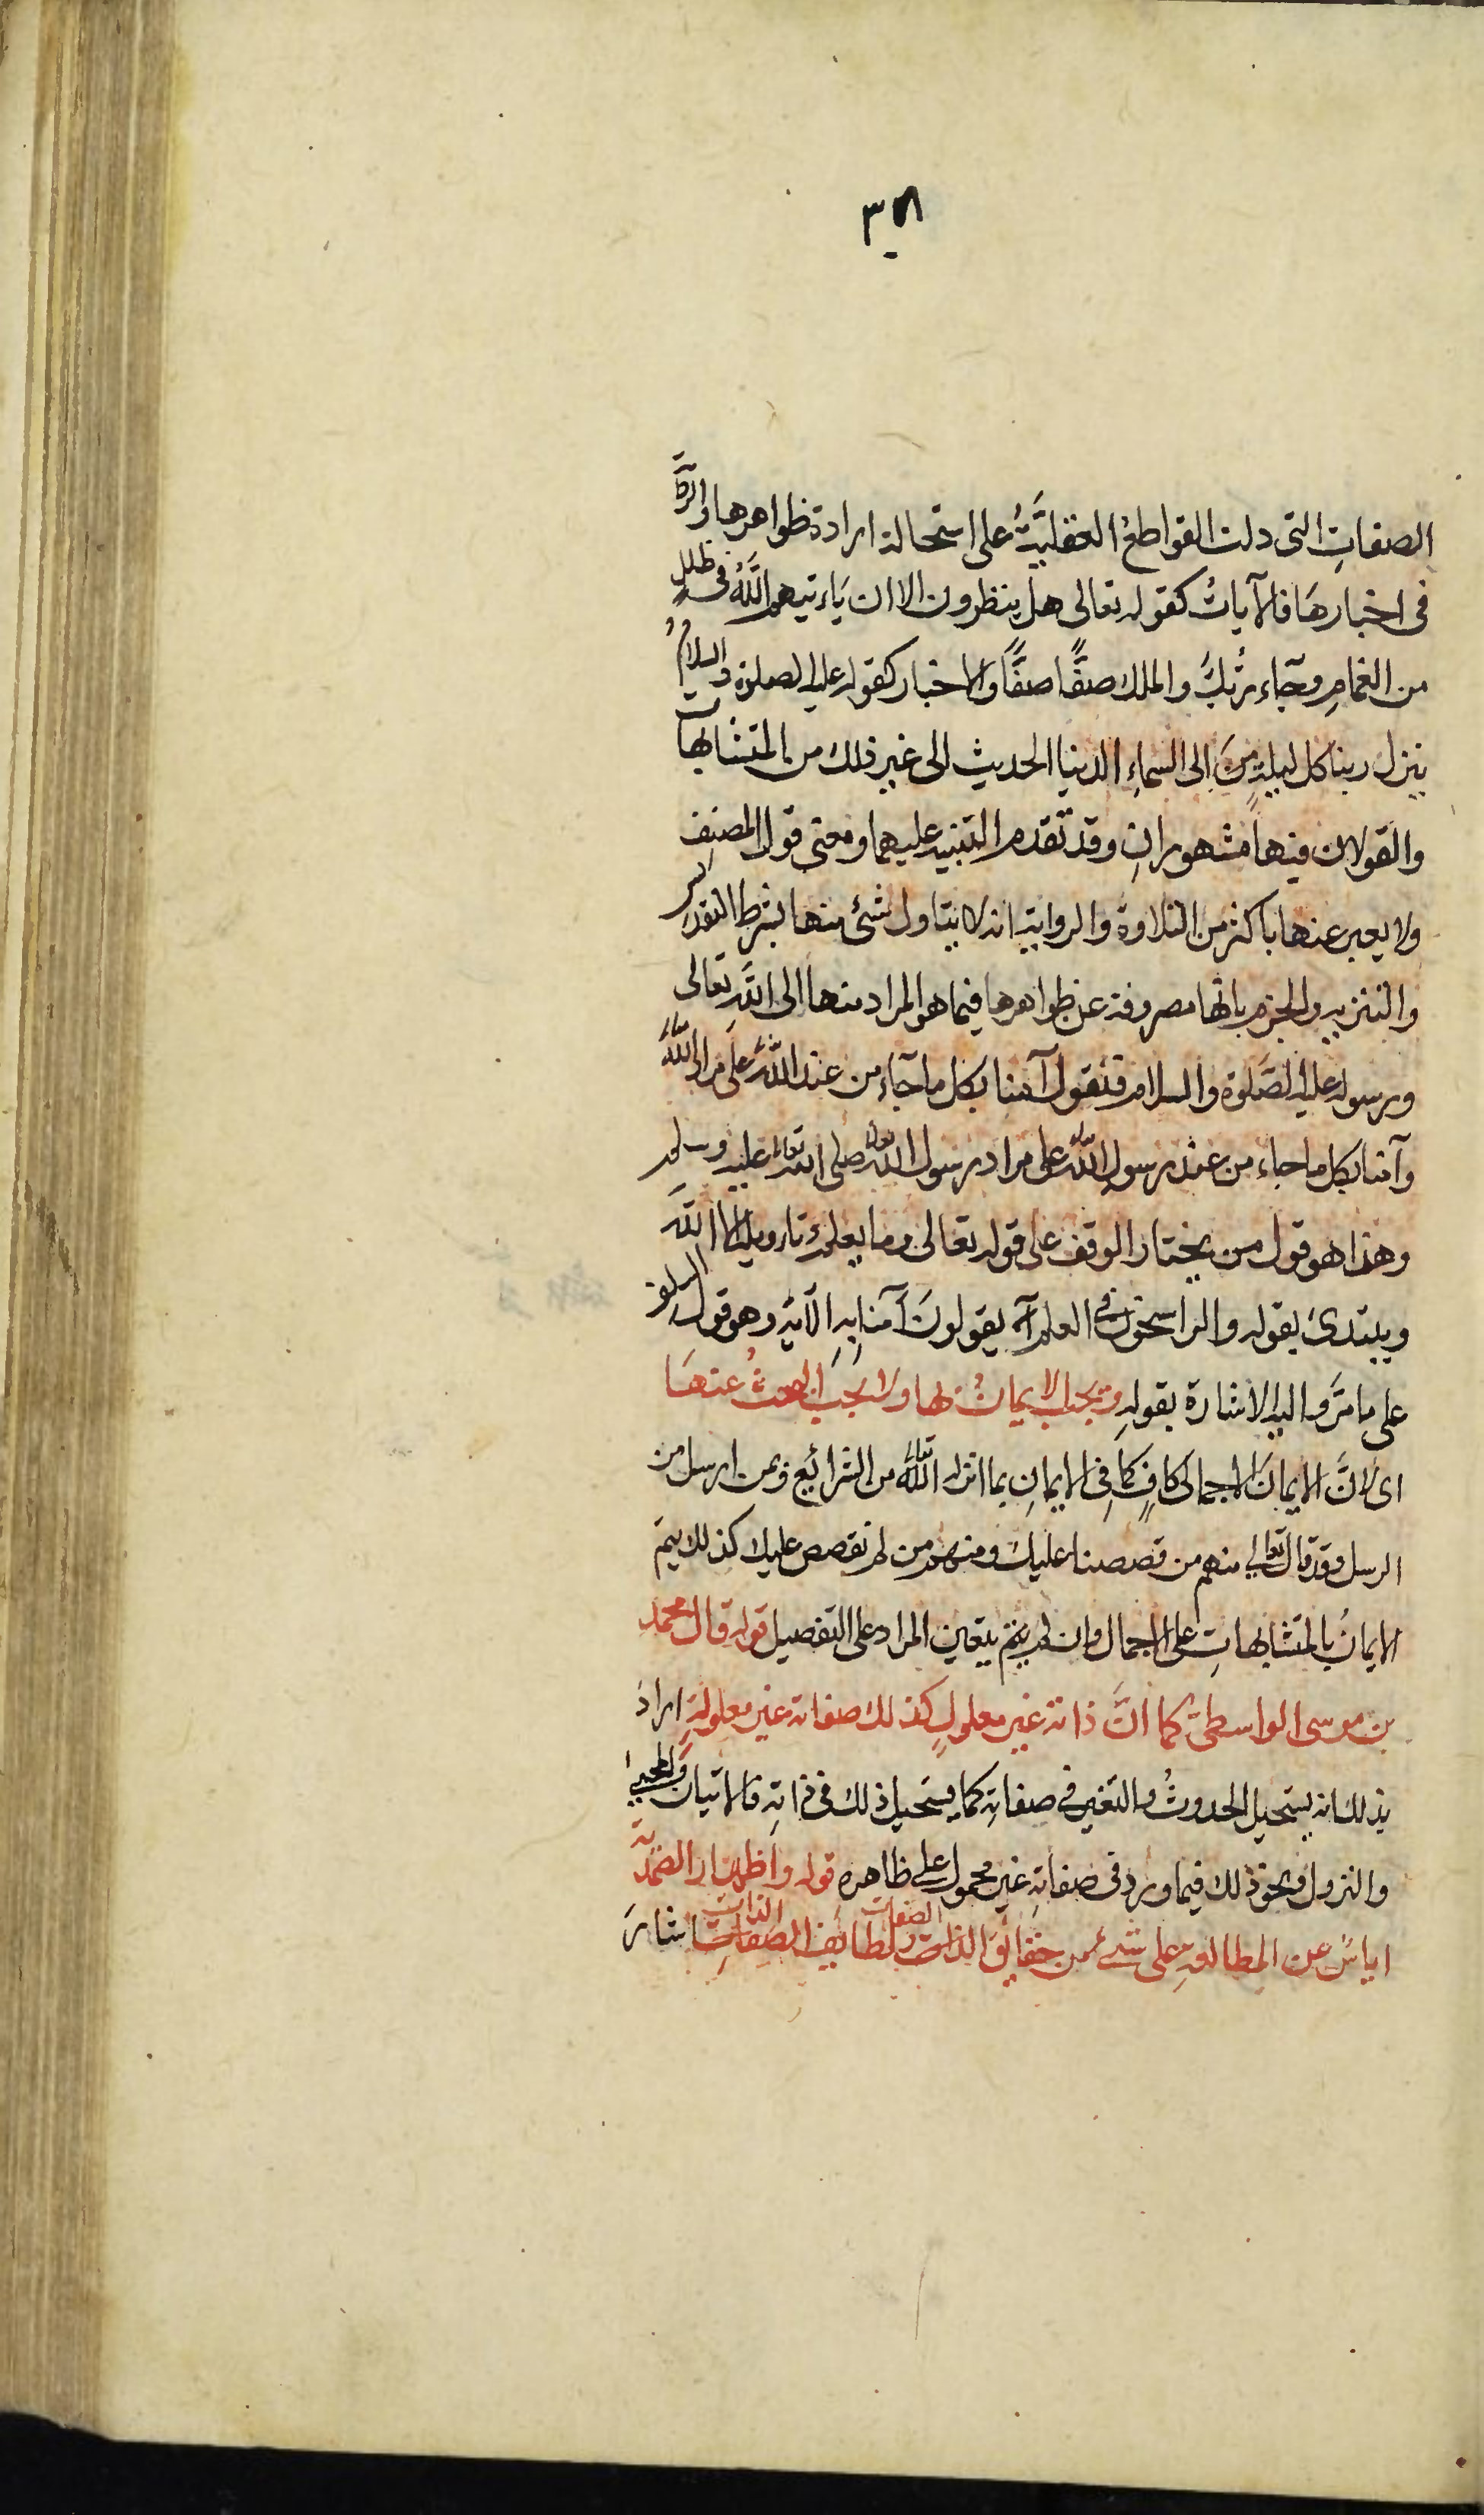 الصفاتِ التى دلت القواطعُ العقليَّةُ على استحالة ارادة ظواهرها
فى اخبارهَا فالآياتُ كقوله تعالى هل ينظرون الا ان يَاءتيهم اللَّهُ فى ظللٍ
من الغمامِ وجَآء ربُّكَ والملك صفًّا صفًّا والاخبار كقوله عليه الصلوة والسلامُ
ينزل ربنا كل ليلةٍ الى السماءِ الدنيا الحديث الى غير ذلك من المتشابهات
والقولان فيها مشهورانِ وقد تقدم التنبيه عليهما ومعنى قول المصنِف
ولا يعبر عنها باكثر من التلاوة والرواية انه لا يتاول شئ منها بشرط التقديس
والتنزيه والجزم بانها مصروفة عن ظواهرها فيما هو المراد منها الى اللَّه تعالى
ورسوله عليه الصَّلوة والسلام فنقول آمنا بكل ما جَآء من عند اللَّه على مراد اللَّه
وآمنا بكل ما جاء من عند رسولِ اللَّه على مراد رسول اللَّه تعالى صلى الله تعالى عليه وسلم
وهذا هو قول من يختار الوقف على قوله تعالى وما يعلمُ تاءويله الا اللَّه
ويبتدئ بقوله والراسخون فى العلم يقولونَ آمنا بِهِ الآية وهو قول السلف
على ما مَرَّ واليه الاشارة بقولهِ ويجب الايمانُ بها ولا يجب البحثُ عنهَا
اى لانَّ الايمانَ الاجمالى كافٍ كما فِى الايمانِ بما انزله اللَّه تعالى من الشرائع وبمن ارسل من
الرسل وقد قال تعالى منهم من قصصنا عليك ومنهم من لم نقصص عليك كذلك يتم
الايمانُ بالمتشابهاتِ على الاجمال وان لم يتم بتعين المراد على التفصيل قوله قال محمد
بن موسى الواسطىّ كما انَّ ذاته غير معلولٍ كذلك صفاته غير معلولةٍ ارادَ
بذلك انه يستحيل الحدوثُ والتغير فى صفاتِه كما يستحيل ذلك فى ذاتِهِ فالاتيان والمجيئ
والنزول ونحو ذلك فيما ورد فى صفاتِهِ غير محمول على ظاهره قوله واظهار الصمديّة
اياسٌ عن المطالعةِ على شئٍ من حقائقَ الذات الصفات ولطائف الصفاتِ الذات اشارَ